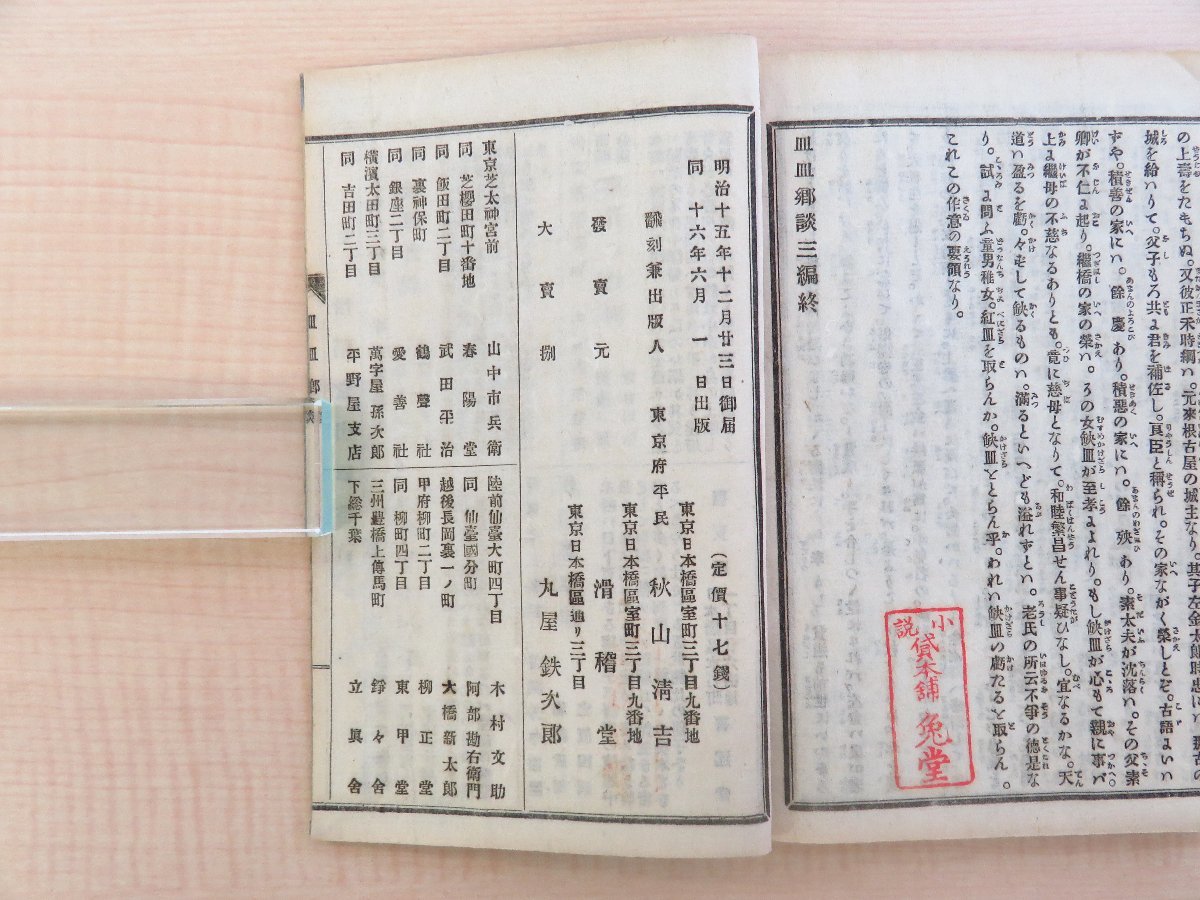 の上壽をたもちぬ。又彼正禾時綱ハ。元來根古屋の城主なり。其子左金太郎時忠に
城を給ハりて。父子もろ共よ君を補佐し。良臣と稱られ。その家ながく榮しとぞ。古語よいハ
ずや。積善の家にハ。餘慶あり。積惡の家にハ。餘殃あり。素太夫が沈落ハ。その父素
卿が不仁よ起り。繼橋の家の榮ハ。その女缺皿が至孝よよれり。もし缺皿が心もて親に事バ
上よ繼母の不慈なるありとも。竟に慈母となりて。和睦繁昌せん事疑ひなし。宜なるかな。天
道ハ盈るを虧。々をして缺るものハ。滿るといへども溢れずとハ。老氏の所云不爭の德是な
り。試よ問ふ童男稚女。紅皿を取らんか。缺皿をとらん乎。われハ缺皿の虧たるを取らん。
これこの作意の要領なり。
皿皿郷談三編終
小說
貸本舖
兔堂
明治十五年十二月廿三日御届
同 十六年六月 一 日出版
(定價十七錢)
飜刻兼出版人 東京府平民 秋山淸吉
東京日本橋區室町三丁目九番地
發賣元 滑稽堂
東京日本橋區室町三丁目九番地
大賣捌 丸屋鉄次郎
東京日本橋區通り三丁目
東京芝太神宮前 山中市兵衛
同 芝櫻田町十番地 春陽堂
同 飯田町二丁目 武田平治
同 裏神保町 鶴聲社
同 銀座二丁目 愛善社
橫濱太田町三丁目 萬字屋孫次郎
同 吉田町二丁目 平野屋支店
陸前仙臺大町四丁目 木村文助
同 仙臺國分町 阿部勘右衛門
越後長岡裏一ノ町 大橋新太郎
甲府柳町二丁目 柳正堂
同 柳町四丁目 東甲堂
三州豊橋上傳馬町 錚々舍
下総千葉 立眞舍
皿皿郷談